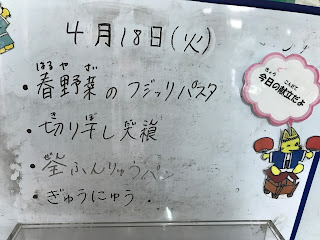 4月18日(火)
はる や さい
・春野菜のフジッリパスタ
き ぼ
・切り干し大根
ぜん
・全ふんりゅうパン
・ぎゅうにゅう
きょう こんだて
今日の献立だよ